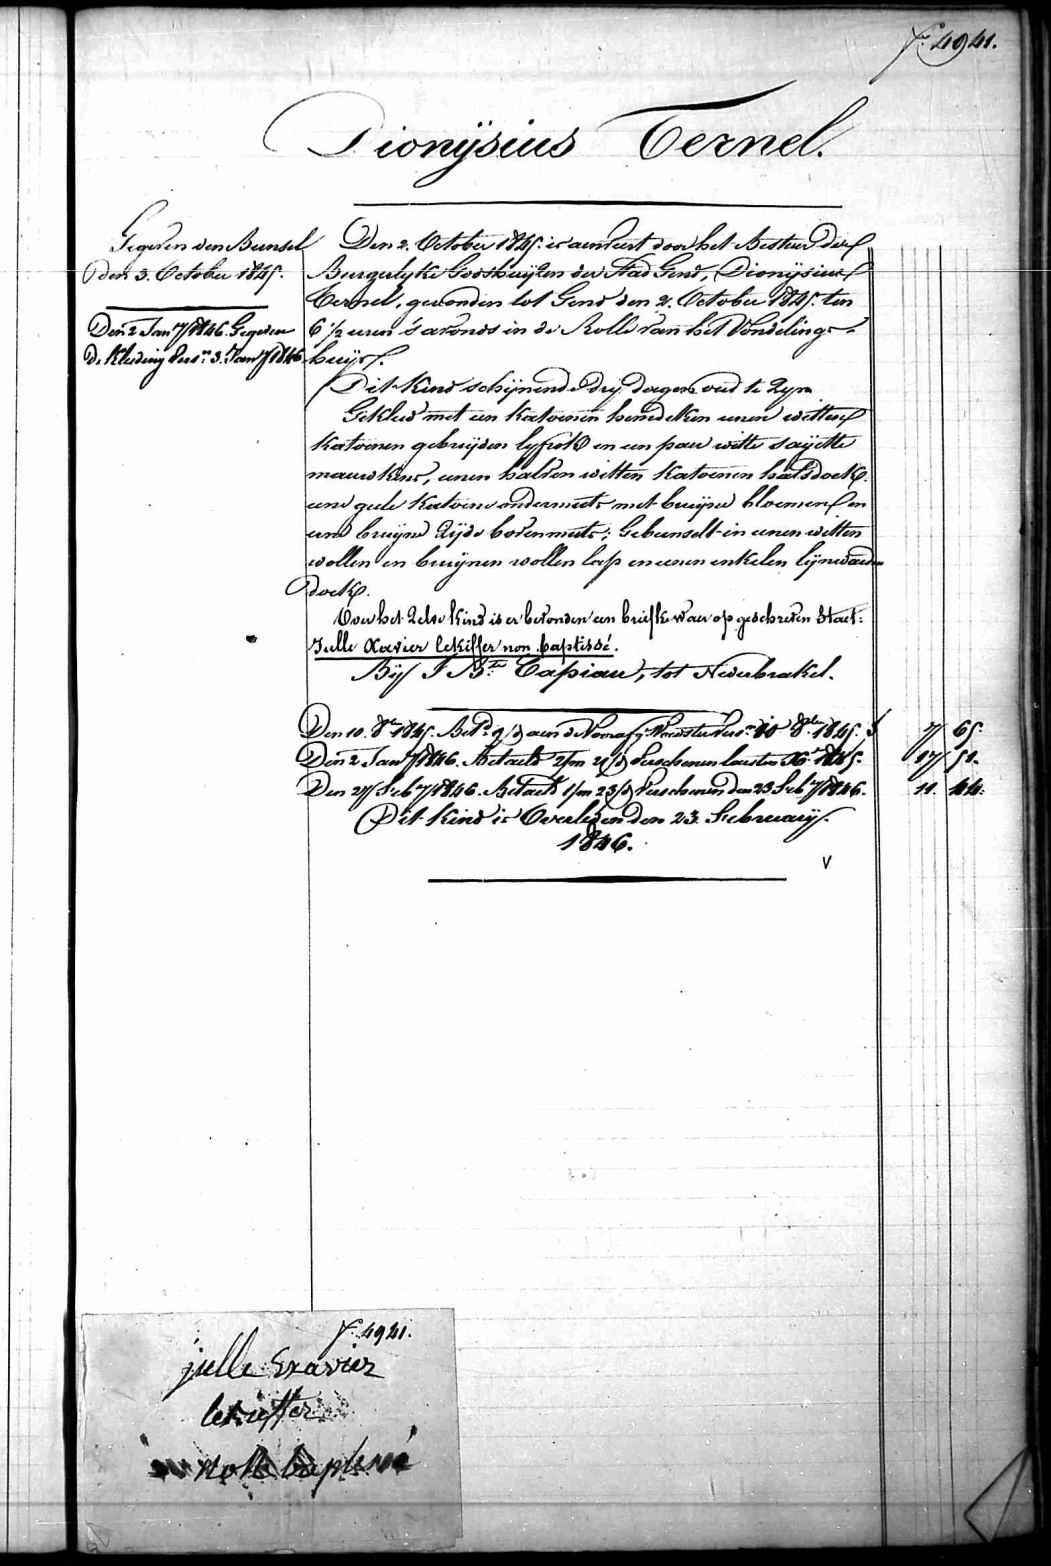 f. 4941.
Dionÿsius Ternel.
Gegeven den Bunsel
den 3. October 1845.
Den 2 Jan 7/1846. Gegeven
De Kleeding Vers.n 3. Jan 7/1846
Den 2. October 1845. is aenveert door het Bestuer der
Burgerlyke Godshuijzen der Stad Gend, Dionÿsius
Ternel, gevonden tot Gend den 2. October 1845. ten
6 1/2 uren s'avonds in de Rolle van het Vondelings-
huijs.
Dit Kind schijnende drij dagen oud te Zijn
Gekleed met een katoenen hemdeken eenen witten
katoenen gebreijden lyfrok en een paer witte saijette
mauwkens, eenen halven witten katoenen halsdoek.
eene geele katoene ondermuts met bruijne bloemen en
eene bruijne Zijde bovenmuts; Gebunselt in eenen witten
wollen en bruijnen wollen lap en eenen enkelen lijnwaeden
doek.
Over het Zelve kind is er bevonden een briefke waer op geschreven staet:
Julle Xavier lekiffer non baptissé.
Bij J Bte Capiau, tot Nederbrakel.
Den 10. 8re 1845. Bet.d 9/d aen de Voorafg. Voedster Vers.n 10 8re 1845. f 7 65.
Den 2 Jan 7/1846. Betaeld 2/m 21/d Verschenen laesten Xb.r 1845. 17 51.
Den 27 Feb 7/1846. Betaeld 1/m 23/d Verschenen den 23 Feb 7/1846. 11. 44.
Dit kind is Overleden den 23. Februarij
1846.
V
f. 4941.
julle Exavier
lekiffer
non baptissé